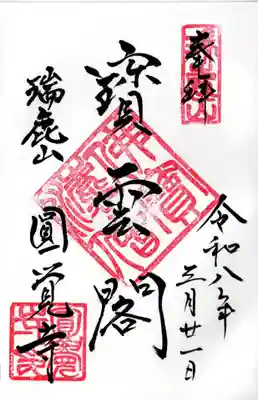 奉拝
令和八年
三月廿一日
寳雲閣
瑞鹿山
圓覚寺